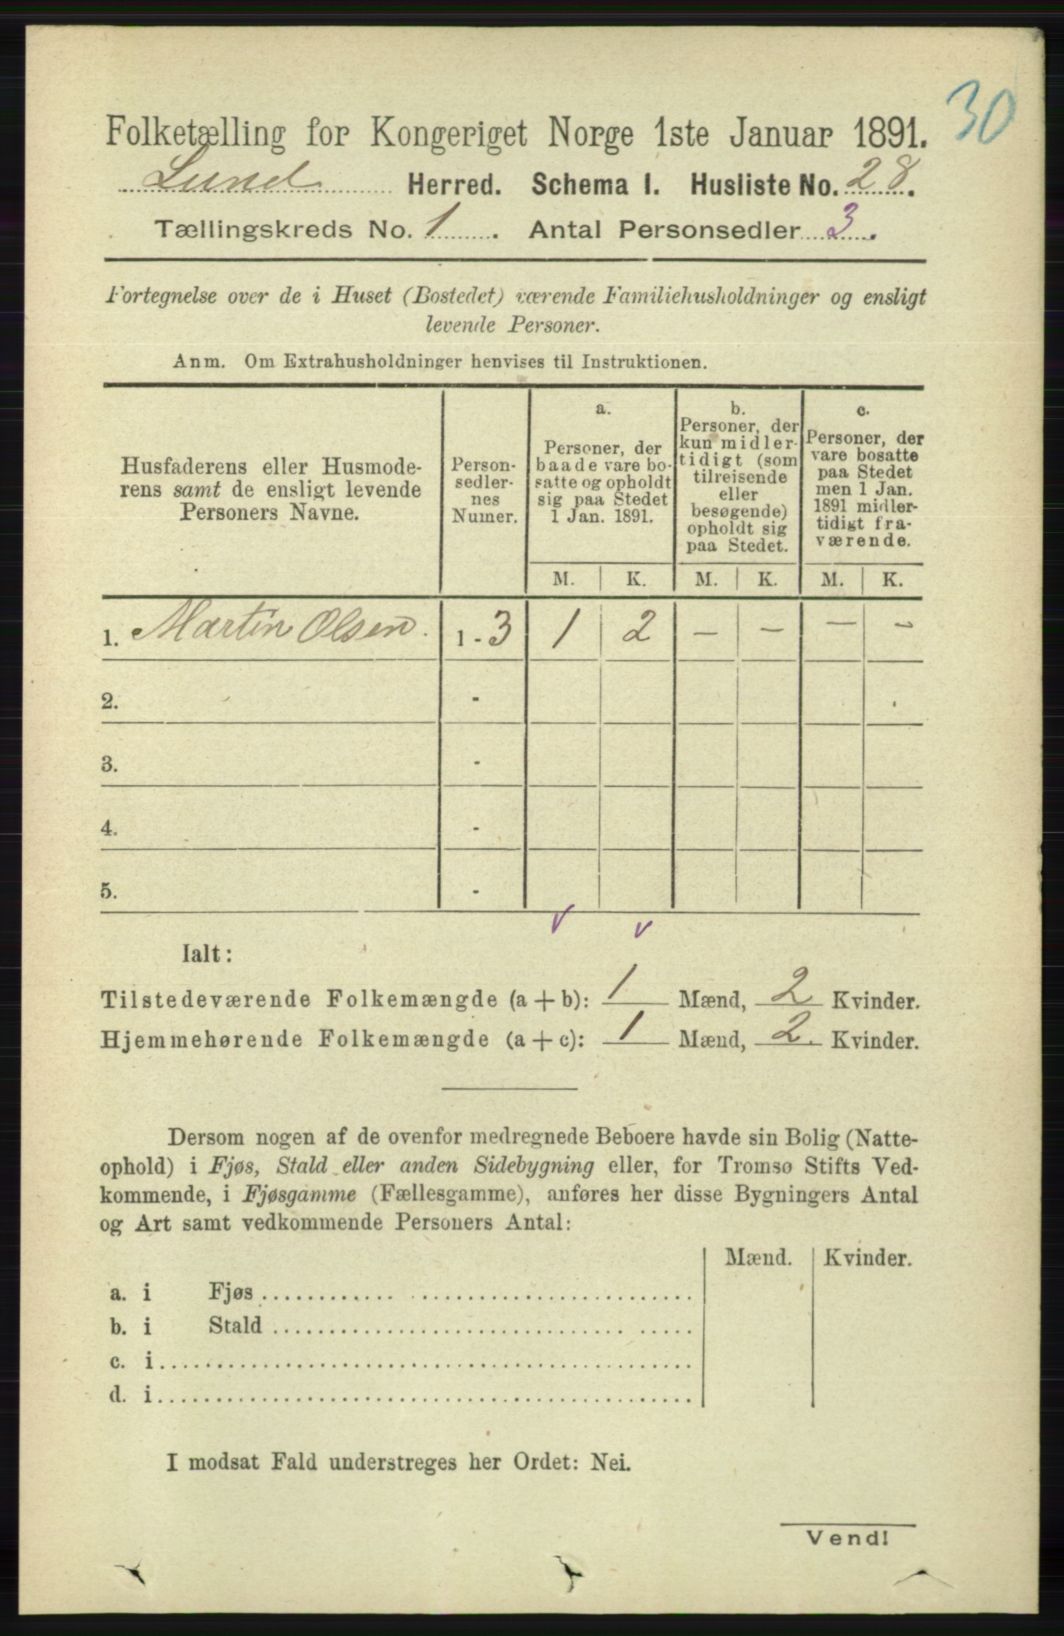 30
Folketælling for Kongeriget Norge 1ste Januar 1891.
Lund Herred. Schema I. Husliste No. 28.
Tællingskreds No. 1. Antal Personsedler 3.
Fortegnelse over de i Huset (Bostedet) værende Familiehusholdninger og ensligt
levende Personer.
Anm. Om Extrahusholdninger henvises til Instruktionen.
Husfaderens eller Husmode-
rens samt de ensligt levende
Personers Navne.
Person-
sedler-
nes
Numer.
a.
Personer, der
baade vare bo-
satte og opholdt
sig paa Stedet
1 Jan. 1891.
b.
Personer, der
kun midler-
tidigt (som
tilreisende
eller
besøgende)
opholdt sig
paa Stedet.
c.
Personer, der
vare bosatte
paa Stedet
men 1 Jan.
1891 midler-
tidigt fra-
værende.
M. K. M. K. M. K.
1. Martin Olsen. 1 - 3 1 2 - - - -
2. -
3. -
4. -
5. -
Ialt:
Tilstedeværende Folkemængde (a + b): 1 Mænd, 2 Kvinder.
Hjemmehørende Folkemængde (a + c): 1 Mænd, 2. Kvinder.
Dersom nogen af de ovenfor medregnede Beboere havde sin Bolig (Natte-
ophold) i Fjøs, Stald eller anden Sidebygning eller, for Tromsø Stifts Ved-
kommende, i Fjøsgamme (Fællesgamme), anføres her disse Bygningers Antal
og Art samt vedkommende Personers Antal:
Mænd. Kvinder.
a. i Fjøs
b. i Stald
c. i
d. i
I modsat Fald understreges her Ordet: Nei.
Vend!